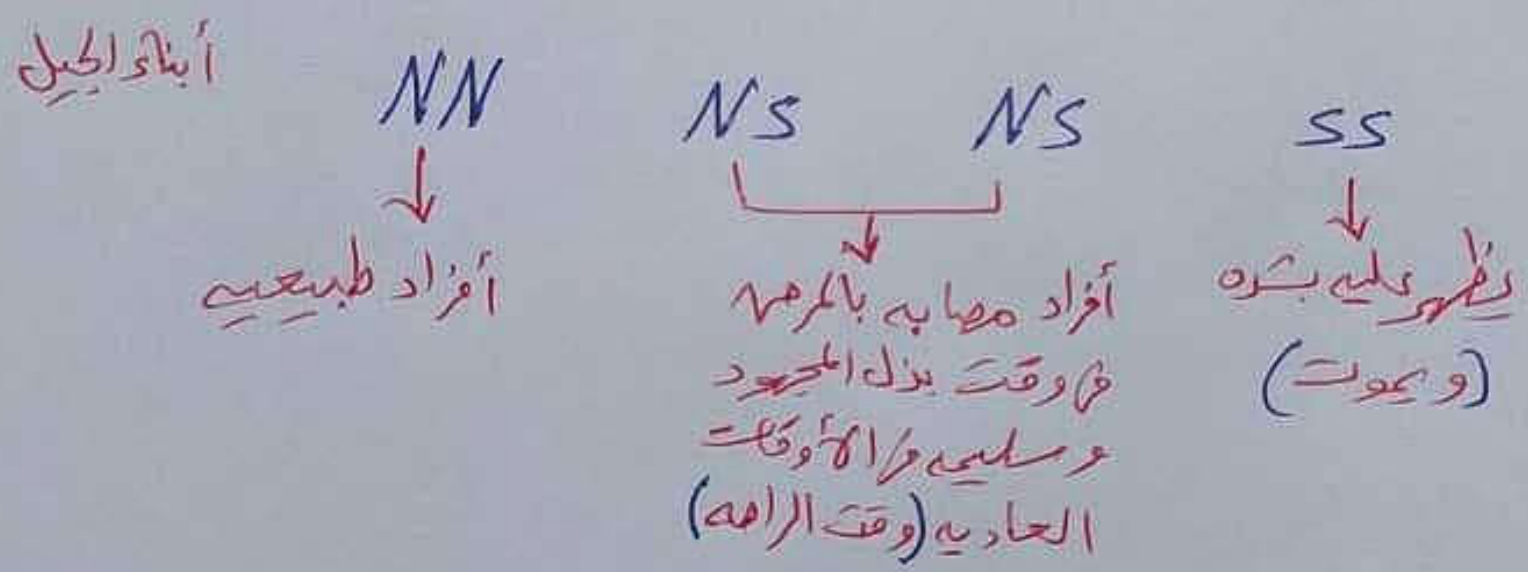 أبناء الجيل
NN NS NS SS
أفراد طبيعيين
أفراد مصابه بالمرض
في وقت بذل المجهود
وسليمه في الأوقات
العاديه (وقت الراحه)
يظهر عليه بشده
(ويموت)